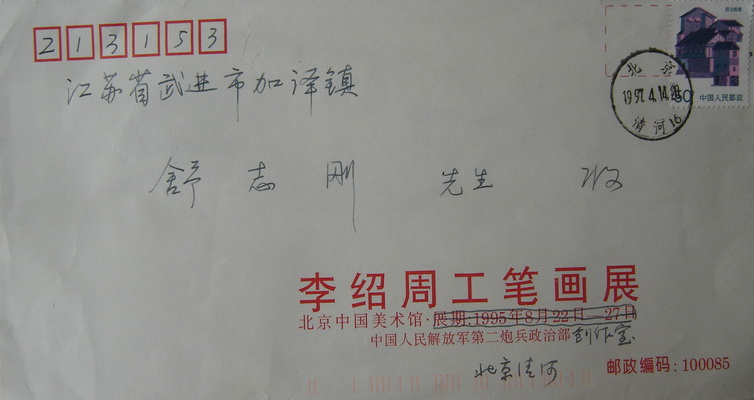 213153
江苏省武进市加泽镇
舒志刚 先生 收
李绍周工笔画展
北京中国美术馆·展期:1995年8月22日—27日
中国人民解放军第二炮兵政治部创作室
北京清河
邮政编码:100085
中国人民邮政
北京
1997.4.14.20
清河16